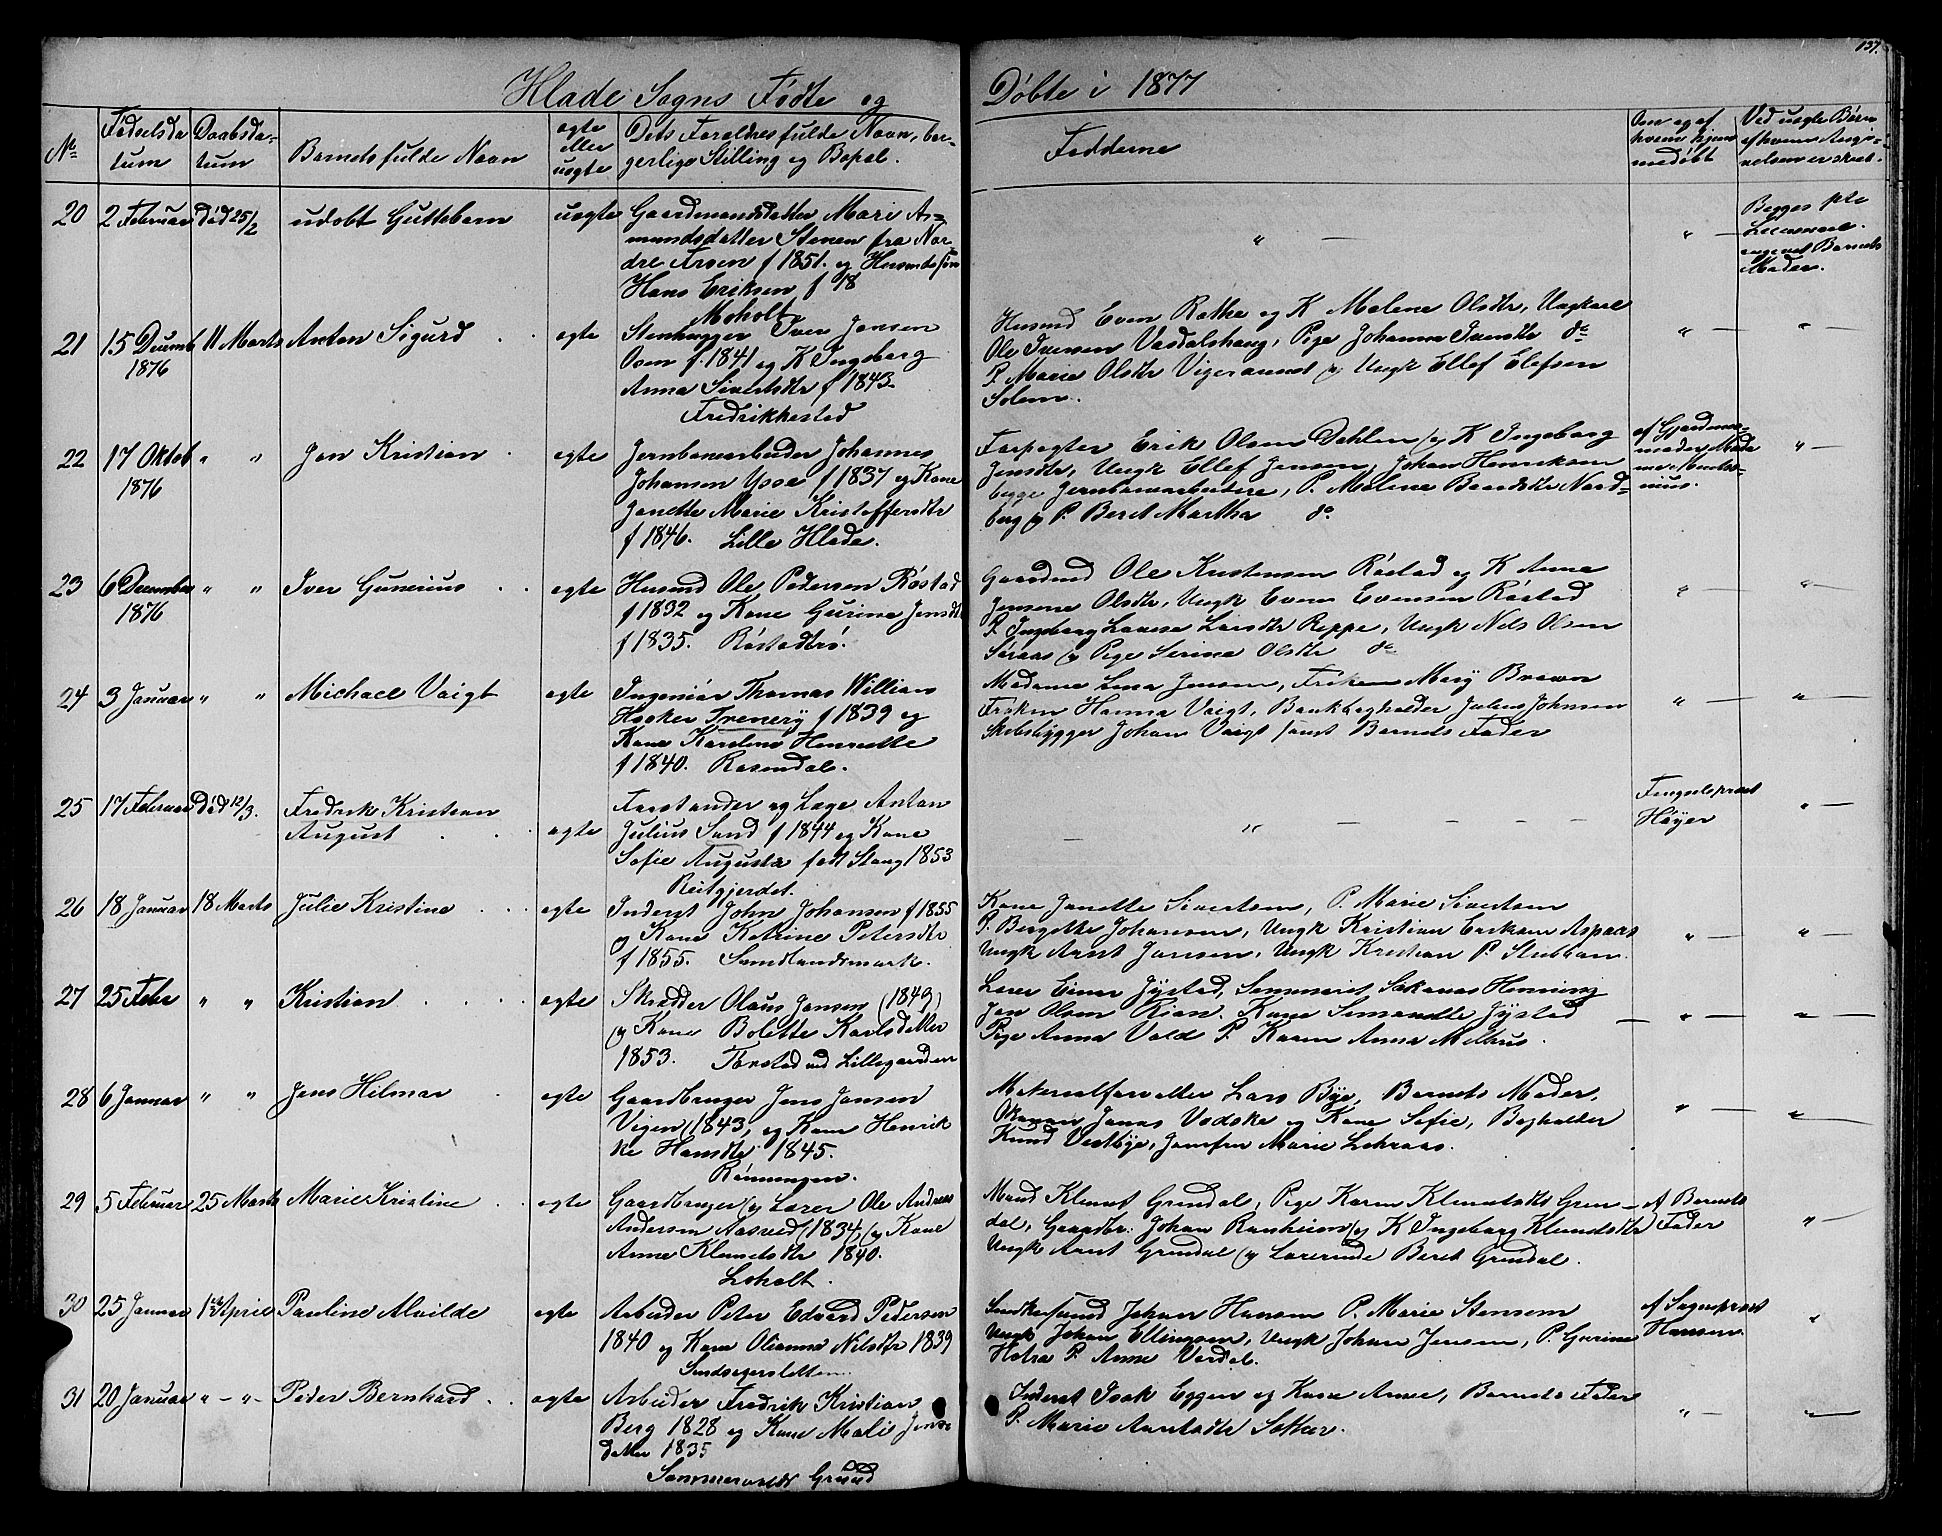 137.
Hlade Sogns Fødte og Døbte i 1877
No
Fødselsda
tum
Daabsda-
tum
Barnets fulde Navn
ægte
eller
uægte
Dets Forældres fulde Navn, bor-
gerlige Stilling og Bopæl.
Fadderne
Om og af
hvem hjem
medøbt
Ved uægte Børn
af hvem Angi-
velsen er skeet.
20 2 Februar Død 25/2 udøbt Guttebarn uægte Gaardmandsdatter Mari As-
mundsdatter Stenen fra Nor-
dre Troen f 1851. og Husmdssøn
Hans Eriksen f 18
Moholt
" — " —
Begges pte
Barnets
Moder.
21 15 Decemb 11 Marts Anton Sigurd ægte Stenhugger Iver Jensen
1876
Osen f 1841 og K Ingeborg
Anna Sivertsdtr f 1843.
Fredrikkested
Husmd Even Rathe og K Malene Olsdtr, Ungkarl
Ole Iversen Vasdalshaug, Pige Johanna Iversdtr do
P. Marie Olsdtr Vigesaunet og Ungk Ellef Elefsen
Solem.
" — " —
22 17 Oktob " " Jon Kristian ægte Jernbanearbeider Johannes
1876
Johansen Ysse f 1837 og Kone
Janette Marie Kristoffersdtr
f 1846. Lille Hlade.
Forpagter Erik Olsen Dahlen og K Ingeborg
Jensdtr, Ungk Ellef Jensen, Johan Henriksen
begge Jernbanearbeidere, P. Malene Baardsdtr Nord-
berg og P. Beret Martha do
af Gjordemo-
moder
" —
23 6 December " " Iver Gunerius ægte Husmd Ole Pedersen Røstad
1876
f 1832 og Kone Gurine Jensdtr
f 1835. Røstadtrø.
Gaardmd Ole Kristensen Røstad og K Anne
Jensene Olsdtr, Ungk Even Evensen Røstad
P. Ingeborg Lovise Larsdtr Reppe, Ungk Nels Olsen
Søraas og Pige Serine Olsdtr do
" — " —
24 3 Januar " " Michael Voigt ægte Ingeniør Thomas William
Hooker Trenery f 1839 og
Kone Karoline Henriette
f 1840. Rosendal.
Madame Lena Jensen, Frøken Mary Brown
Frøken Hanna Voigt, Bankbogholder Julius Johnsen
Skibsbygger Johan Voigt samt Barnets Fader
" — " —
25 17 Februar Død 12/3. Fredrik Kristian
August ægte
Forstander og Læge Anton
Julius Sand f 1844 og Kone
Sofie Augusta født Stang 1853
Reitgjerdet.
— " — — — —
Fengselsprest
Høyer
" —
26 18 Januar 18 Marts Julie Kristine ægte Inderst John Johansen f 1855
og Kone Katrine Petersdtr
f 1855. Sundlandsmark.
Kone Janette Sivertsen, P. Marie Sivertsen
P. Bergette Johansen, Ungk Kristian Eriksen Aspaas
Ungk Arnt Jansen, Ungk Kristian P. Stubban.
" — " —
27 25 Febr " " Kristian ægte Skrædder Olaus Jansen (1849)
og Kone Bolette Karlsdatter
1853. Torstad ved Lillegaarden
Lærer Einar Jystad, Seminarist Henning
Jon Olsen Rian. Kone Jystad
Pige Anna Vold P. Karen Anna Melhus.
— " — " —
28 6 Januar " " Jens Hilmar ægte Gaardbruger Jens Jansen
Vigen (1843, og Kone Henrik
ke Hansdtr 1845.
Rønningen.
Materialforvalter Lars Bye, Barnets Moder,
Jonas Vodske og Kone Sofie, Bogholder
Knud Vestbye, Jomfru Marie Lehraas.
" — " —
29 5 Februar 25 Marts Marie Kristine ægte Gaardbruger og Lærer Ole Andreas
Andersen Aasved (1834, og Kone
Anne Klemetsdtr 1840.
Loholt.
Maud Klemet Grendal, Pige Karen Klemetsdtr Gren-
dal, Gaardbr. Johan Ranheim og K Ingeborg Klemetsdtr
Ungk Arnt Grendal og Lærerinde Beret Grendal.
af Barnets
Fader
" —
30 25 Januar 1ste April Pauline Alvilde ægte Arbeider Peter Edvard Pedersen
1840 og Kone Olianna Nilsdtr 1839
Johan Hansen P. Marie Stensen
Ungk Johan Ellingsen, Ungk Johan Jensen, P. Gurine
Hofra P. Anne Verdal.
af Sognepræst
Hansen.
"
31 20 Januar " — " — Peder Bernhard ægte Arbeider Fredrik Kristian
Berg 1828 og Kone Mali Jens-
datter 1835
Grund
Inderst Isak Eggen og Kone Anne, Barnets Fader
P. Marie Arntsdtr Sother.
" — " —